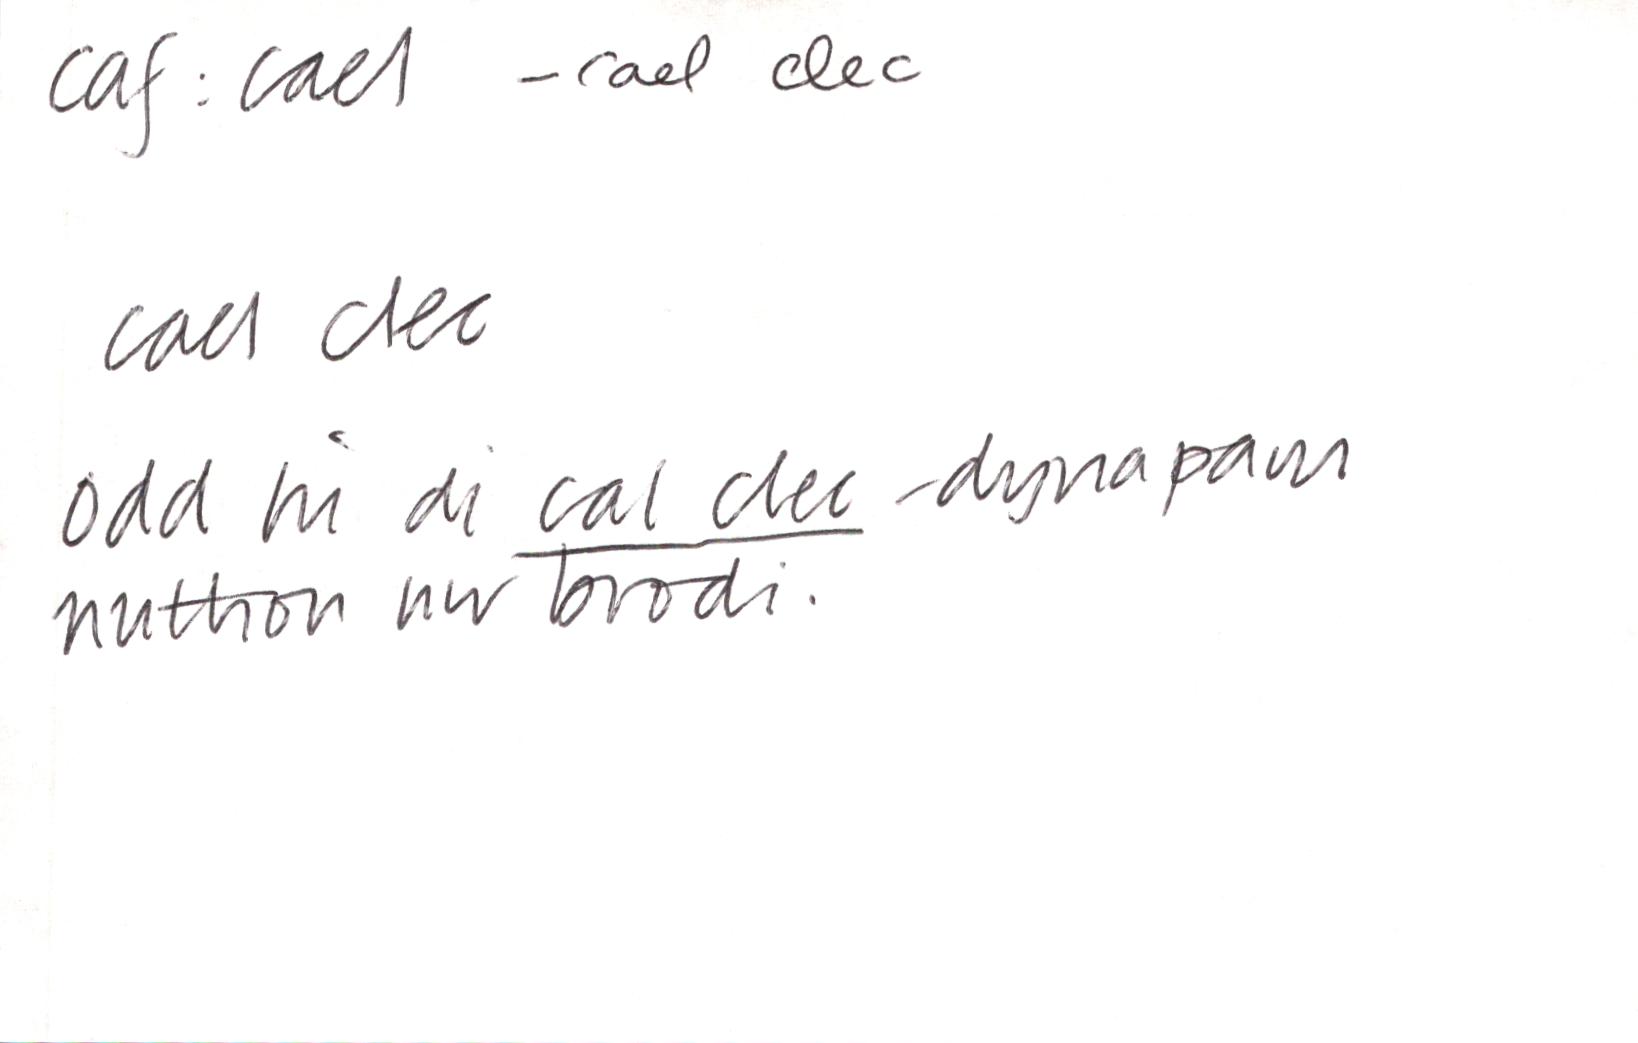 caf: cael - cael clec
cael clec
odd hi di cal clec - dyna pam
nuthon nw brodi.